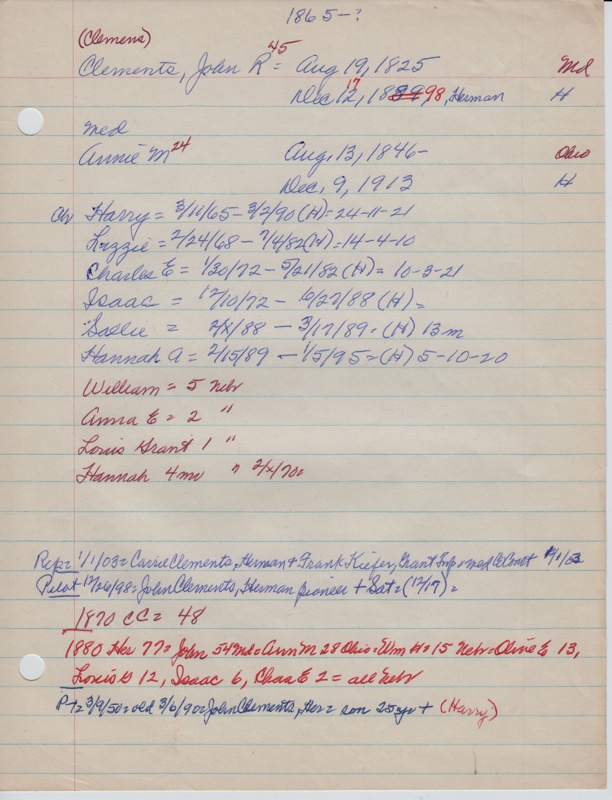 1865-?
(Clemens)
Clements, John R 45 = Aug 19, 1825 Md
Dec 12, 17 1899, 98, Herman H
med
Annie M 24 Aug, 13, 1846- Ohio
Dec, 9, 1913 H
Ch Harry = 3/11/65 - 3/2/90 (H) = 24-11-21
Lizzie = 2/24/68 - 7/4/82 (H) = 14-4-10
Charles E = 1/30/72 - 5/21/82 (H) = 10-3-21
Isaac = 12/10/72 - 6/27/88 (H) =
Sallie = 2/x/88 - 3/17/89 = (H) 13 m
Hannah A = 2/15/89 - 1/5/95 = (H) 5-10-20
William = 5 Nebr
Anna E = 2 "
Louis Grant 1 "
Hannah 4 mo " 2/x/70=
Rep = 1/1/03 = Carrie Clements, Herman + Frank Kiefer, Grant Twp = med 1/1/03
Pilot 12/26/98 = John Clements, Herman pioneer + Sat = (12/17) =
1870 CC = 48
1880 Her 77 = John 54 Md = Ann M 28 Ohio = Wm H = 15 Nebr = Olive E 13,
Louis G 12, Isaac 6, Chas E 2 = all Nebr
PT = 3/9/50 = old 3/6/90 = John Clements, Her = son 25 yr + (Harry)